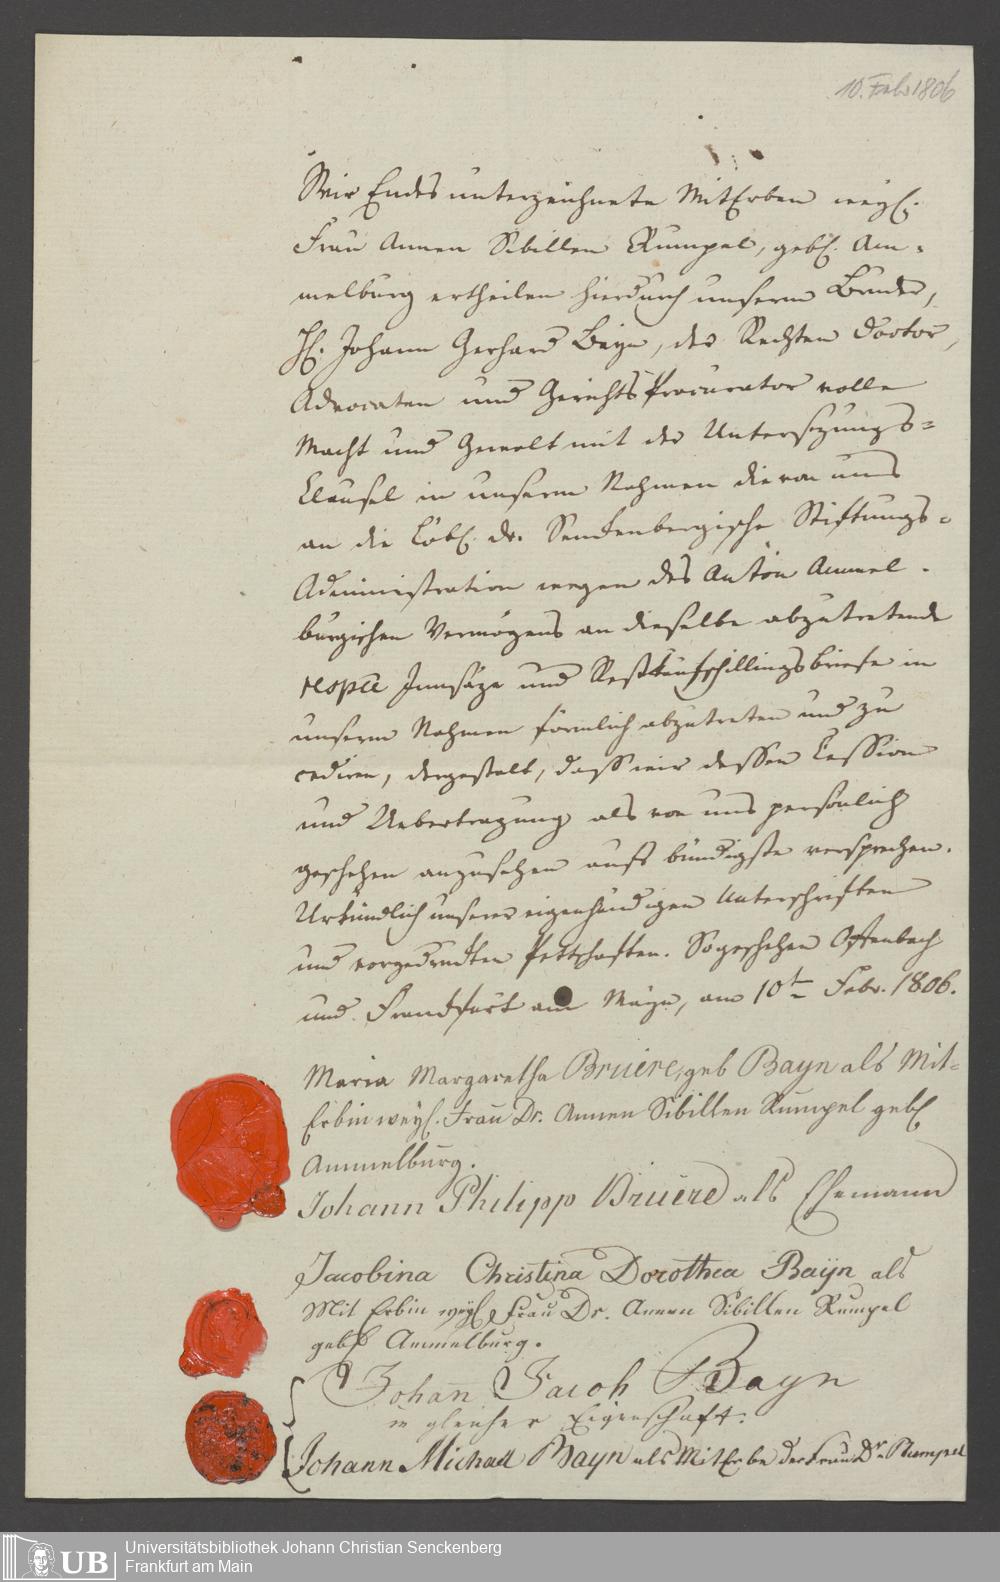 10. Feb 1806
Wir Endes unterzeichnete MitErben weyl.
Frau Annen Sibillen Rumpel, gebl. Am-
melburg ertheilen hierdurch unserm Bruder,
H. Johann Gerhard Bayn, der Rechten Doctor,
Advocaten und GerichtsProcurator volle
Macht und Gewalt mit der Untersezungs-
Clausel in unserm Nahmen die von uns
an die Löbl. Dr. Senckenbergische Stiftungs-
Administration wegen des Anton Ammel-
burgischen Vermögens an dieselbe abzutretende
respve Innsäze und Restkaufschillingsbriefe in
unserm Nahmen förmlich abzutreten und zu
cediren, dergestalt, dass wir dessen Cession
und Uebertragung als von uns persönlich
geschehen anzusehen aufs bündigste versprechen.
Urkundlich unserer eigenhändigen Unterschriften
und vorgedruckten Pettschaften. So geschehen Offenbach
und Franckfurt am Mayn, am 10ten Febr. 1806.
Maria Margaretha Bruère, geb Bayn als Mit-
Erbin weyl. Frau Dr. Annen Sibillen Rumpel gebl
Ammelburg.
Johann Philipp Bruère als Ehemann
Jacobina Christina Dorothea Bayn als
Mit Erbin weyl Frau Dr. Annen Sibillen Rumpel
gebl Ammelburg.
Johan Jacob Bayn
in gleicher Eigenschaft.
Johann Michael Bayn als MitErbe der Frau Dr. Rumpel
UB
Universitätsbibliothek Johann Christian Senckenberg
Frankfurt am Main